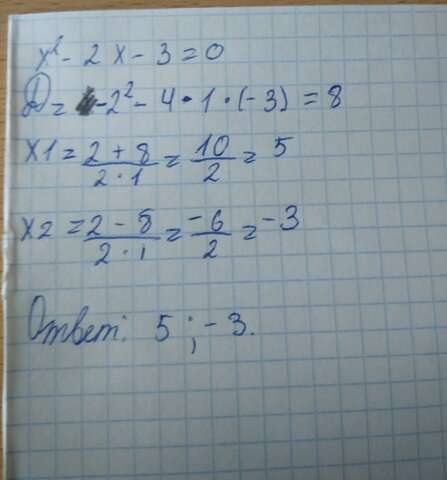 x² - 2x - 3 = 0
D = -2² - 4 · 1 · (-3) = 8
x1 = (2 + 8)/(2 · 1) = 10/2 = 5
x2 = (2 - 8)/(2 · 1) = -6/2 = -3
Ответ: 5 ; -3.